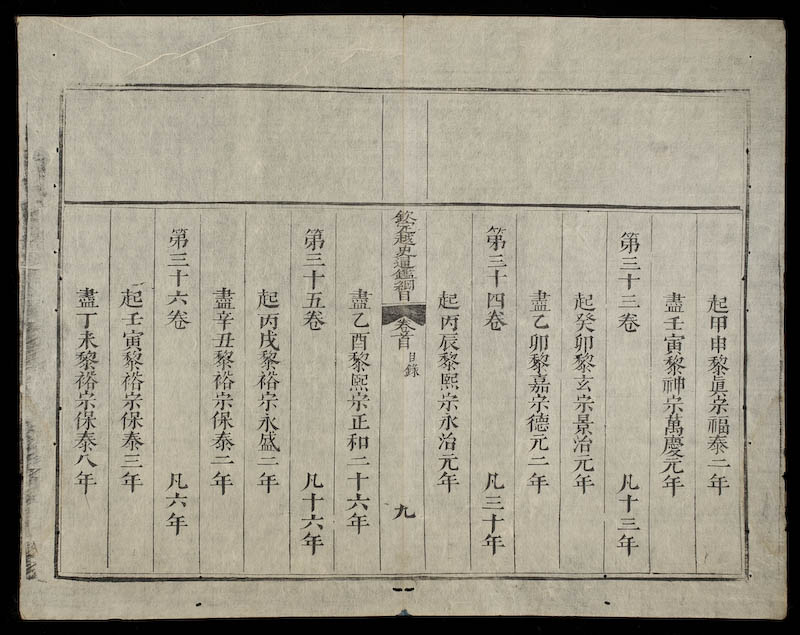 起甲申黎眞宗福泰二年
盡壬寅黎神宗萬慶元年
第三十三卷 凡十三年
起癸卯黎玄宗景治元年
盡乙卯黎嘉宗德元二年
第三十四卷 凡三十年
起丙辰黎熙宗永治元年
欽定越史通鑑綱目 卷首 目錄 九
盡乙酉黎熙宗正和二十六年
第三十五卷 凡十六年
起丙戌黎裕宗永盛二年
盡辛丑黎裕宗保泰二年
第三十六卷 凡六年
起壬寅黎裕宗保泰三年
盡丁未黎裕宗保泰八年